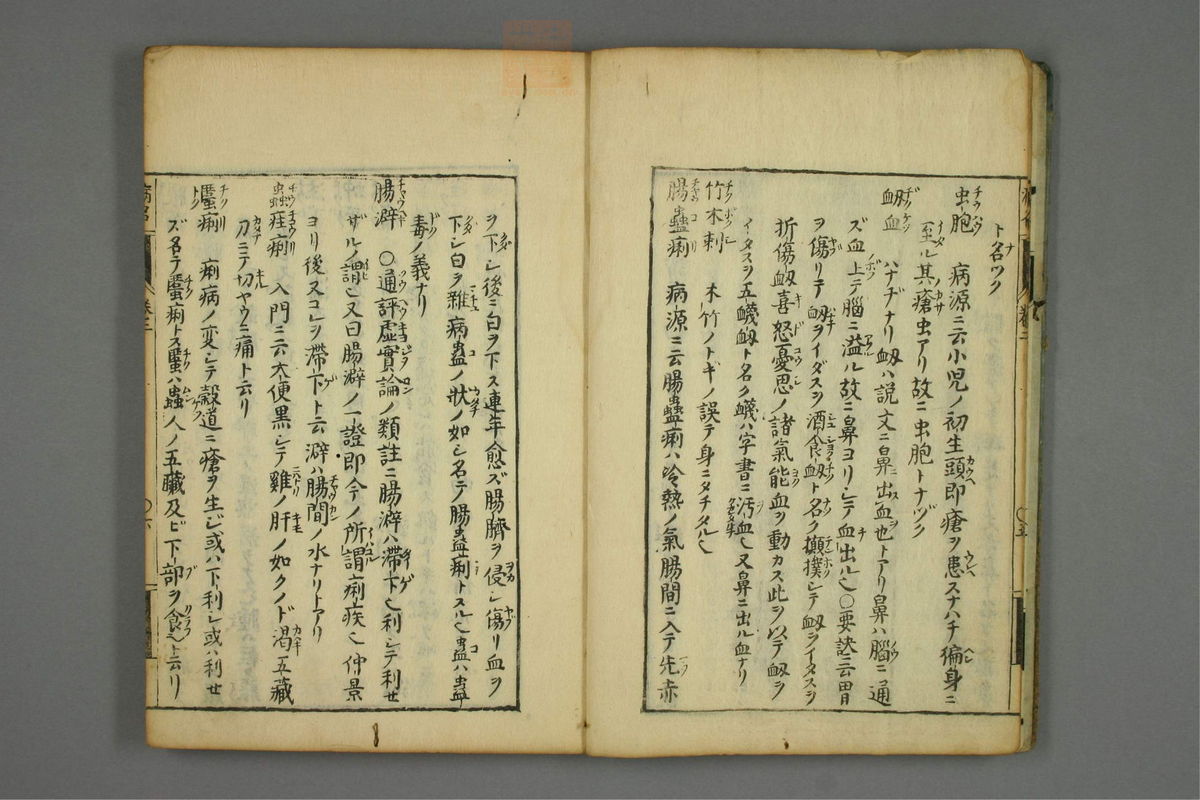 ト名ツク
虫胞 病源ニ云小児ノ初生頭即瘡ヲ患スナハチ猵身ニ
至ル其瘡虫アリ故ニ虫胞トナヅク
衂血 ハナヂナリ衂ハ説文ニ鼻出血也トアリ鼻ハ腦ニ通
ズ血上テ腦ニ溢ル故ニ鼻ヨリシテ血出ル也〇要訣ニ云胃
ヲ傷リテ衂ヲイダスヲ酒食衂ト名ク攧撲シテ衂ヲイタスヲ
折傷衂喜怒憂思ノ諸氣能血ヲ動カス此ヲ以テ衂ヲ
イタスヲ五衊衂ト名ク衊ハ字書ニ汚血也又鼻ニ出ル血ナリ
竹木刺 木竹ノトギノ誤テ身ニタチタル也
腸蠱痢 病源ニ云腸蠱痢ハ冷熱ノ氣腸間ニ入テ先赤
ヲ下シ後ニ白ヲ下ス連年愈ズ腸臍ヲ侵シ傷リ血ヲ
下シ白ヲ雜病蠱ノ狀ノ如シ名テ腸蠱痢トスル也蠱ハ蠱
毒ノ義ナリ
腸澼 〇通評虚實論ノ類註ニ腸澼ハ滯下也利シテ利せ
ザルノ謂也又曰腸澼ノ一證即今ノ所謂痢疾也仲景
ヨリ後又コレヲ滯下ト云澼ハ腸間ノ水ナリトアリ
蟲疰痢 入門ニ云大便黒シテ雞ノ肝ノ如クノド渇五藏
刀ニテ切ヤウニ痛ト云リ
䘌痢 痢病ノ変シテ穀道ニ瘡ヲ生ジ或ハ下利シ或ハ利せ
ズ名テ䘌痢トス䘌ハ蟲人ノ五臟及ビ下部ヲ食也ト云リ